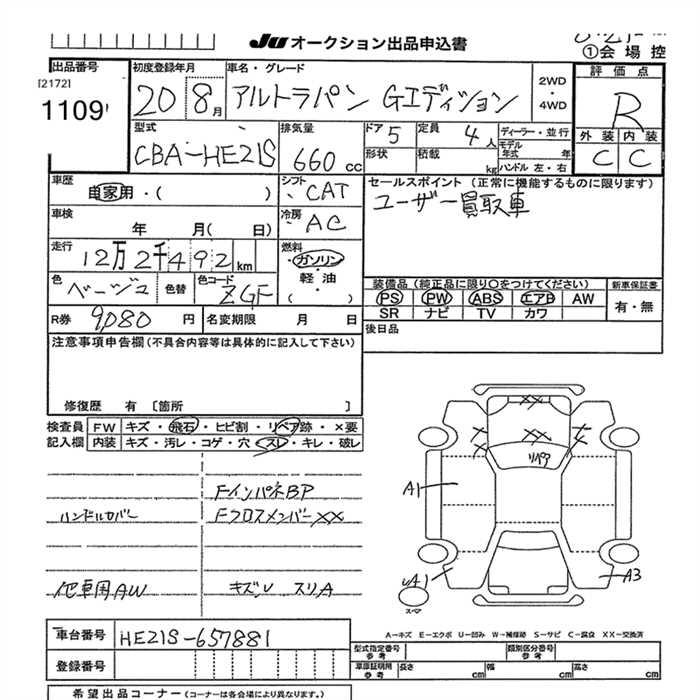 JU オークション出品申込書
①会場控
出品番号 初度登録年月 車名・グレード 評価点
[2172]
1109 20 8月 アルトラパン Gエディション 2WD・4WD R
型式 排気量 ドア 定員 ディーラー・並行 外装 内装
CBA-HE21S 660cc 5 4人 モデル年式 年 C C
形状 積載 kg ハンドル 左・右
車歴 自家用・( ) シフト CAT セールスポイント (正常に機能するものに限ります)
車検 年 月( 日) 冷房 AC ユーザー買取車
走行 12万2千492km 燃料 ガソリン・軽・油( )
色 ベージュ 色替 色コード ZGF
装備品 (純正品に限り○をつけてください) 新車保証書
PS PW ABS エアB AW 有・無
SR ナビ TV カワ
R券 9080円 名変期限 月 日 後日品
注意事項申告欄 (不具合内容等は具体的に記入して下さい)
修復歴 有 [箇所 ]
検査員 FW キズ・飛石・ヒビ割・リペア跡・×要
記入欄 内装 キズ・汚レ・コゲ・穴・スレ・キレ・破レ
FインパネBP
ハンドルカバー Fクロスメンバーxx
他車用AW キズU スリA
xx
xx
リペア
A1
UA1
A3
スペア
A-キズ E-エクボ U-凹み W-補修跡 S-サビ C-腐食 XX-交換済
車台番号 HE21S-657881
型式指定番号 参考 類別区分番号 参考
登録番号
車庫証明用 参考 長さ cm 幅 cm 高さ cm
希望出品コーナー (コーナーは各会場により異なります。)